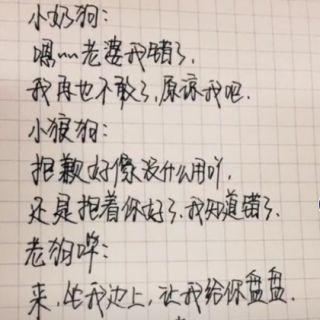 小奶狗：
嗚~~老婆我错了，
我再也不敢了，原谅我吧.
小狼狗：
抱歉好像没什么用吖，
还是抱着你好了.我知道错了.
老狗哔：
来，坐我边上，让我给你盘盘.